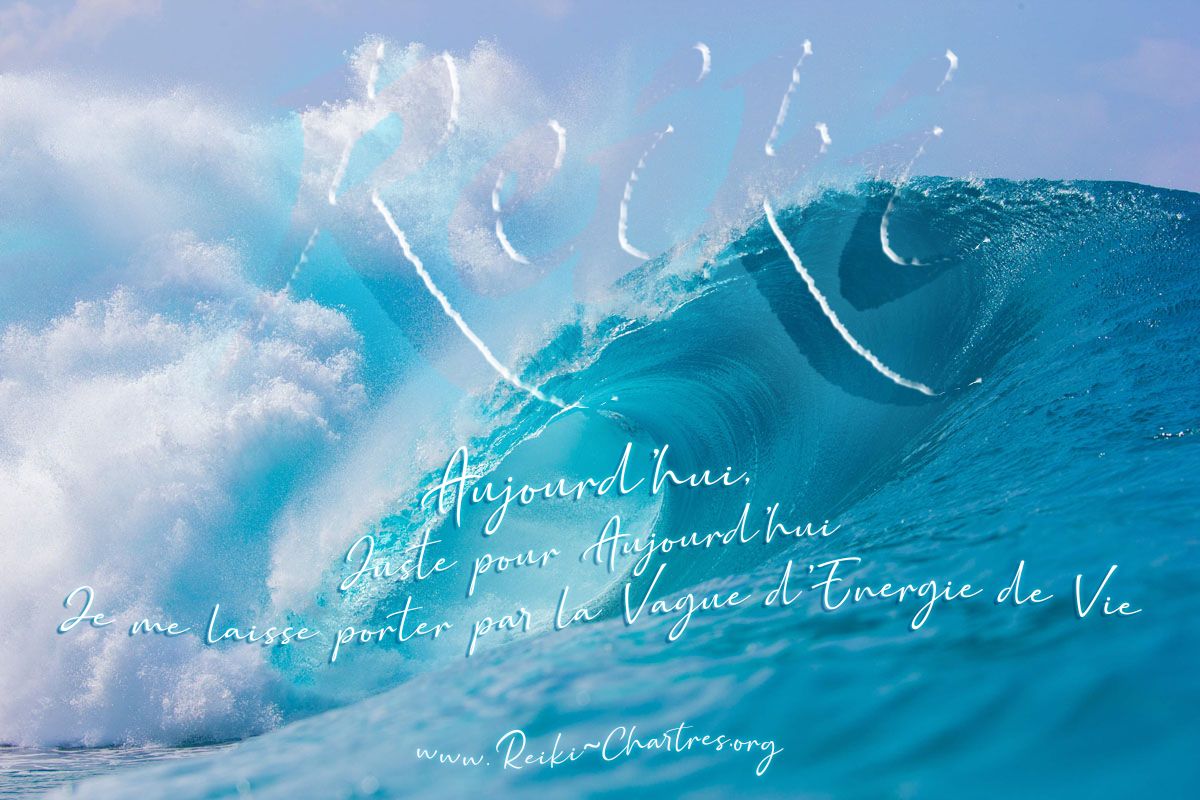 Reiki
Aujourd'hui,
Juste pour Aujourd'hui
Je me laisse porter par la Vague d'Energie de Vie
www.Reiki~Chartres.org